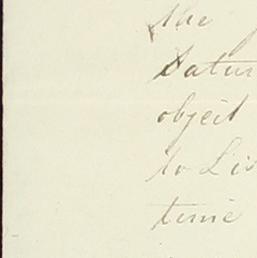 the
Satur
object
to Lis
time